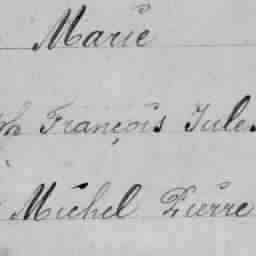 Marie
ph François Jules
Michel Pierre